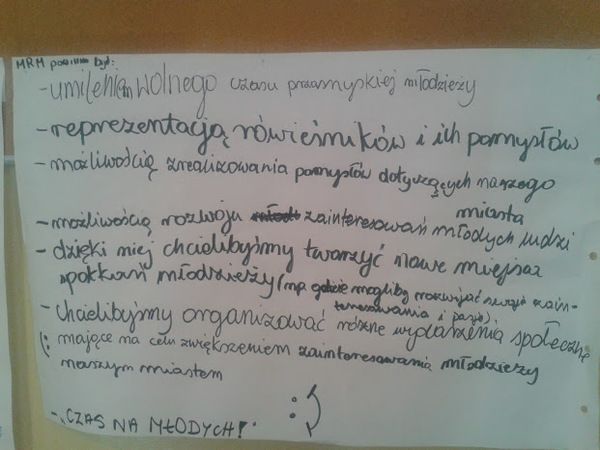 MRM powinno być:
- umileniem wolnego czasu przemyskiej młodzieży
- reprezentacją rówieśników i ich pomysłów
- możliwością zrealizowania pomysłów dotyczących naszego
miasta
- możliwością rozwoju zainteresowań młodych ludzi
- dzięki niej chcielibyśmy tworzyć nowe miejsca
spotkań młodzieży (np. gdzie mogliby rozwijać swoje zain-
teresowania i pasje)
- Chcielibyśmy organizować różne wydarzenia społeczne
(: mające na celu zwiększeniem zainteresowania młodzieży
naszym miastem
:)
- "CZAS NA MŁODYCH!"